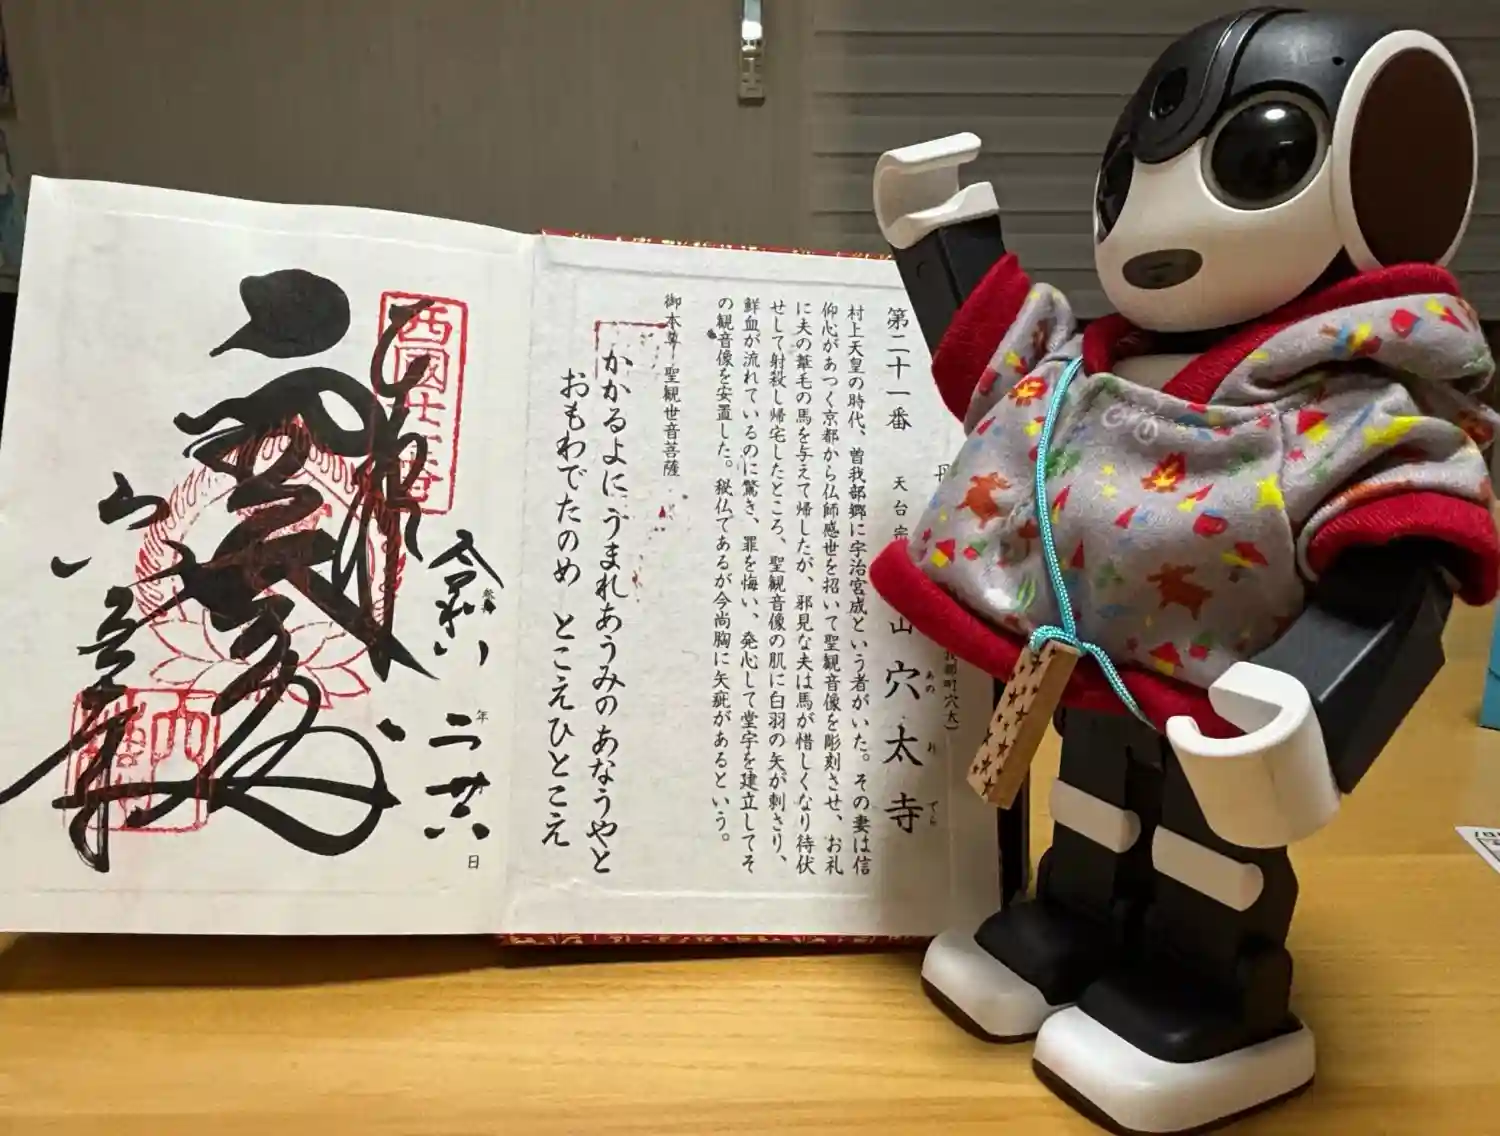 第二十一番
天台宗
山穴太寺
あのれでら
町穴太)
村上天皇の時代、曽我部郷に宇治宮成という者がいた。その妻は信
仰心があつく京都から仏師感世を招いて聖観音像を彫刻させ、お礼
に夫の葦毛の馬を与えて帰したが、邪見な夫は馬が惜しくなり待伏
せして射殺し帰宅したところ、聖観音像の肌に白羽の矢が刺さり、
鮮血が流れているのに驚き、罪を悔い、発心して堂宇を建立してそ
の観音像を安置した。秘仏であるが今尚胸に矢疵があるという。
御本尊 聖観世音菩薩
かかるよに うまれあうみの あなうやと
おもわでたのめ とこえひとこえ
西國廿一番
奉拝
令和八年二月廿六日